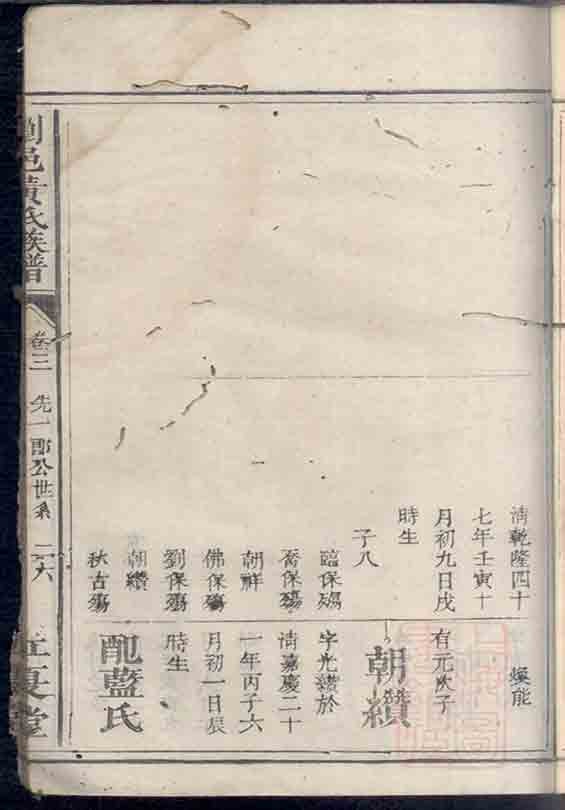 清乾隆四十
七年壬寅十
月初九日戌
時生
子八
臨保殤
喬保殤
朝祥
佛保殤
劉保殤
朝纘
秋古殤
煥能
有元次子
朝纘
字光纘於
清嘉慶二十
一年丙子六
月初一日辰
時生
配藍氏
瀏邑黃氏族譜
卷三
先一郎公世系
二六
江夏堂